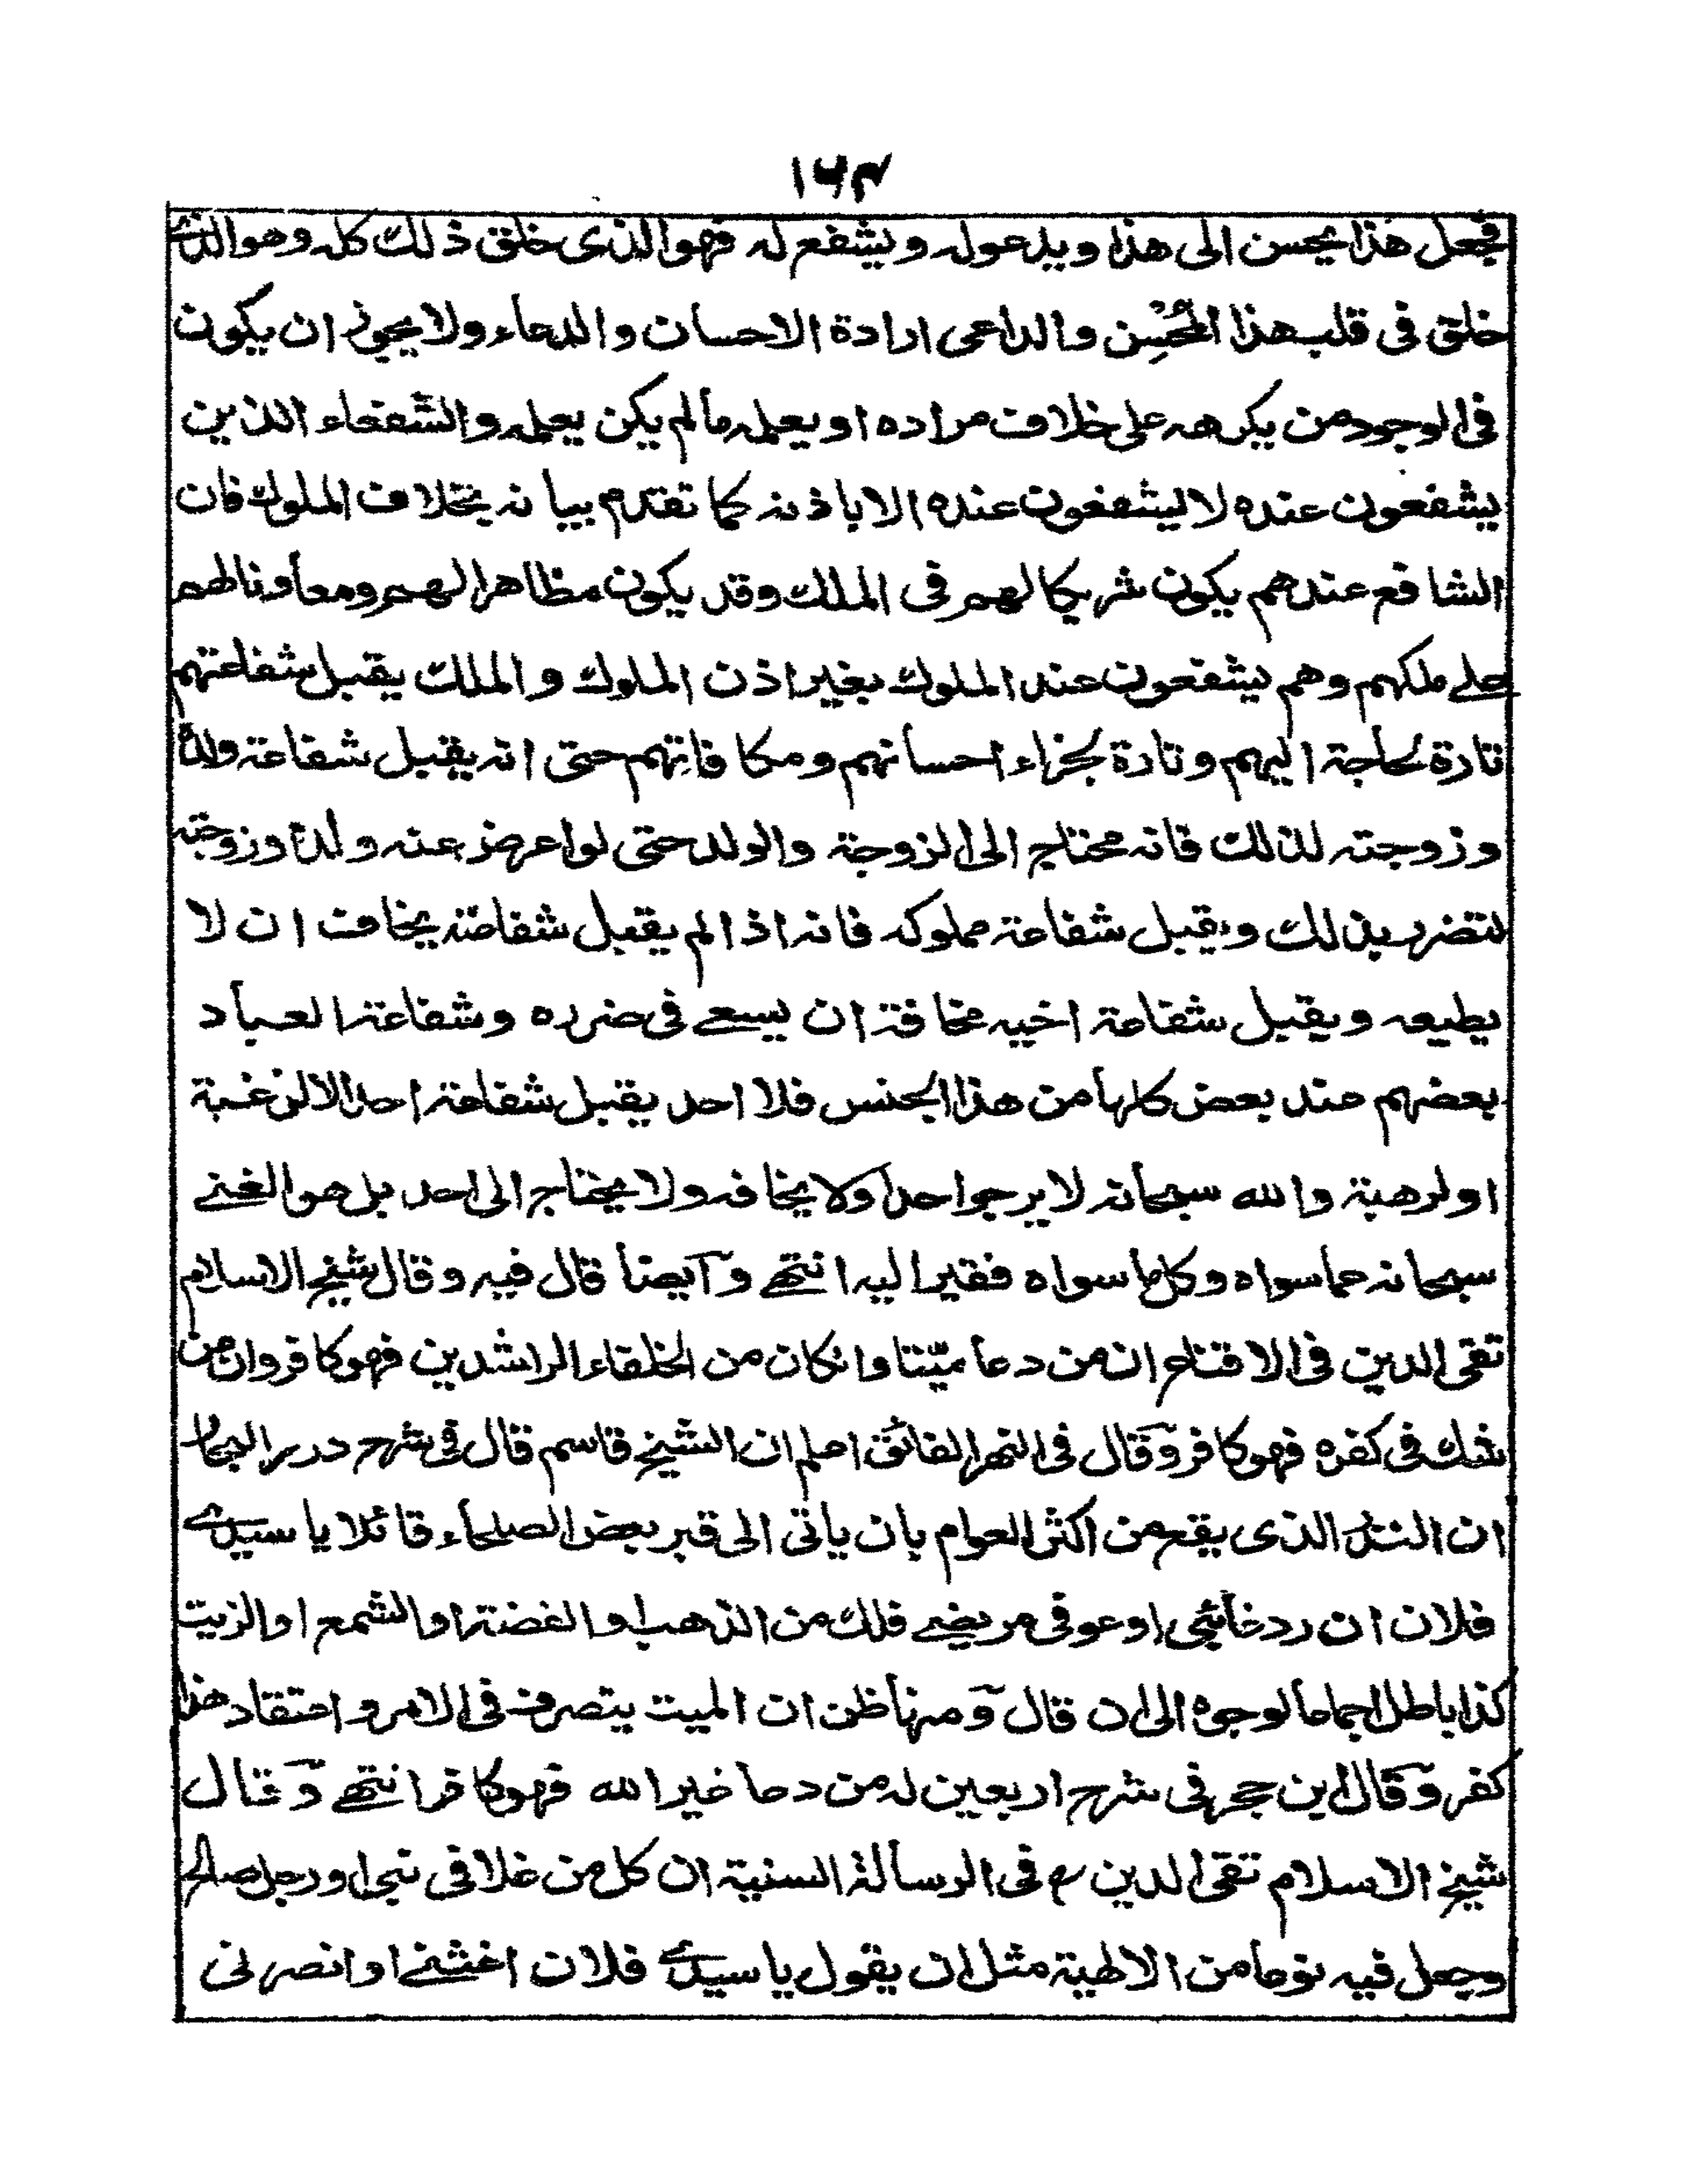 ۱۶۴
فجعل هذا يحسن الى هذا ويدعوله ويشفع له فهو الذى خلق ذلك كله وهو الذے
خلق فى قلب هذا المُحْسِن والداعى ارادة الاحسان والدعاء ولا يجوز ان يكون
فى الوجود من يكرهه على خلاف مراده او يعلمه ما لم يكن يعلمه والشفعاء الذين
يشفعون عنده لا يشفعون عنده الا باذنه كما تقدم بيانه بخلاف الملوك فان
الشافع عندهم يكون شريكا لهم فى الملك وقد يكون مظاهرا لهم ومعاونا لهم
علے ملكهم وهم يشفعون عند الملوك بغير اذن الملوك والملك يقبل شفاعتهم
تارة لحاجة اليهم وتارة لجزاء احسانهم ومكافاتهم حتى انه يقبل شفاعة ولده
وزوجته لذلك فانه محتاج الى الزوجة والولد حتى لو اعرض عنه ولده وزوجته
لتضرر بذلك ويقبل شفاعة مملوكه فانه اذا لم يقبل شفاعته يخاف ان لا
يطيعه ويقبل شفاعة اخيه مخافة ان يسعے فى ضرره وشفاعة العباد
بعضهم عند بعض كلها من هذا الجنس فلا احد يقبل شفاعة احد الا لرغبة
او لرهبة والله سبحانه لا يرجو احدا ولا يخافه ولا يحتاج الى احد بل هو الغنے
سبحانه عما سواه وكل ما سواه فقير اليه انتهے وآيضا قال فيه وقال شيخ الاسلام
تقى الدين فى الاقناع ان من دعا ميّتا وانكان من الخلفاء الراشدين فهو كافر وان من
شك فى كفره فهو كافر وقال فى النهر الفائق اعلم ان الشيخ قاسم قال فى شرح درر البحار
ان النذر الذى يقع من اكثر العوام بان ياتى الى قبر بعض الصلحاء قائلا يا سيدے
فلان ان رد غائبى او عوفى مريضے فلك من الذهب او الفضة او الشمع او الزيت
كذا باطل اجماعا لوجوه الى ان قال ومنها ظن ان الميت يتصرف فى الامر واعتقاد هذا
كفر وقال ابن حجر فى شرح اربعين له من دعا غير الله فهو كافر انتهے وقال
شيخ الاسلام تقى الدين رح فى الرسالة السنية ان كل من غلا فى نبى او رجل صالح
وجعل فيه نوعا من الالهية مثل ان يقول يا سيدے فلان اغثنے او انصرنى